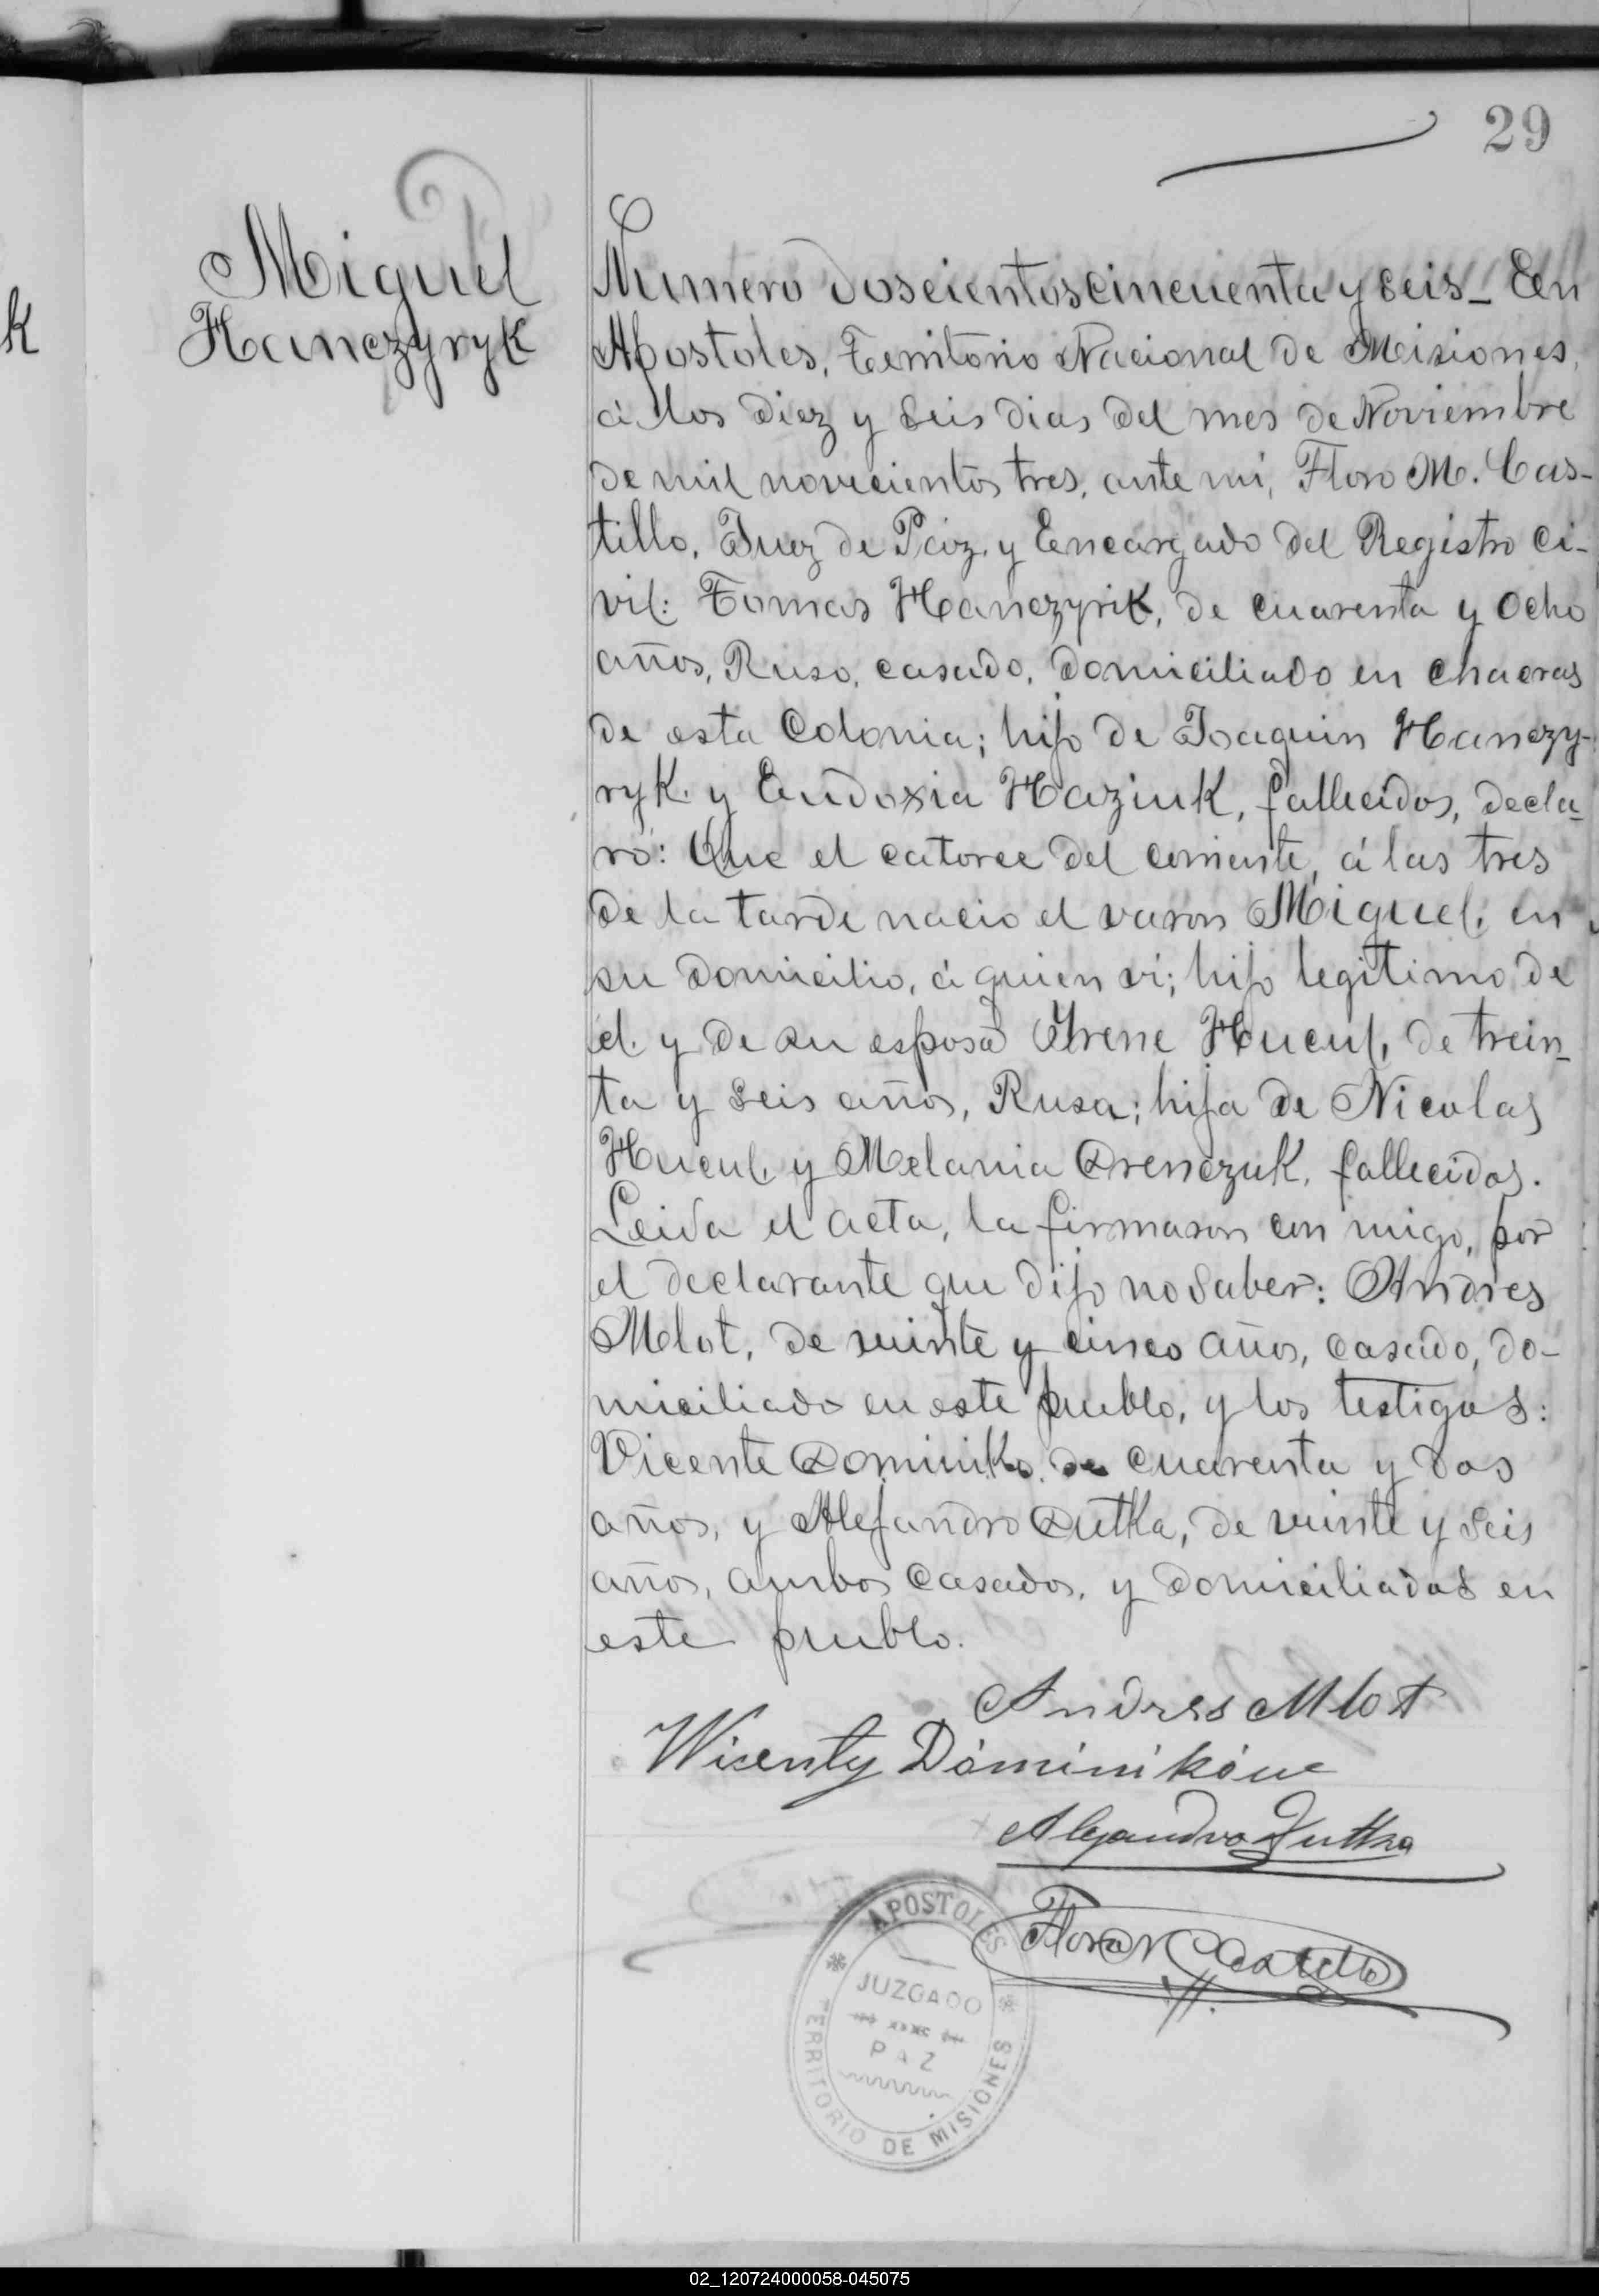 29
k
Miguel
Hanczyryk
Numero doscientos cincuenta y seis_ En
Apostoles, Territorio Nacional de Misiones,
á los diez y seis dias del mes de Noviembre
de mil novecientos tres, ante mi, Floro M. Cas-
tillo, Juez de Paz y Encargado del Registro Ci-
vil: Tomas Hanczyrik, de cuarenta y ocho
años, Ruso, casado, domiciliado en chacras
de esta Colonia; hijo de Joaquin Hanczy-
ryk y Eudoxia Haziuk, fallecidos, decla-
ró: Que el catorce del corriente, á las tres
de la tarde nacio el varon Miguel, en
su domicilio, á quien vi; hijo legitimo de
él y de su esposa Yrene Hucul, de trein-
ta y seis años, Rusa; hija de Nicolas
Hucul y Melania Drenczuk, fallecidos.
Leida el acta, la firmaron con migo, por
el declarante que dijo no saber: Andres
Mlot, de veinte y cinco años, casado, do-
miciliado en este pueblo, y los testigos:
Vicente Dominiko, de cuarenta y dos
años, y Alejandro Dutka, de veinte y seis
años, ambos casados, y domiciliados en
este pueblo.
Andres Mlot
Wicenty Dominików
Alejandro Dutka
Floro M Castillo
APOSTOLES
JUZGADO
PAZ
TERRITORIO DE MISIONES
02_120724000058-045075